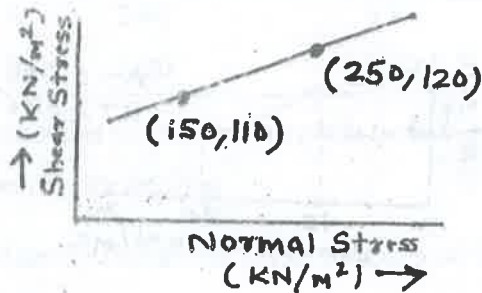 → (KN/m²)
Shear Stress
(250, 120)
(150, 110)
Normal Stress
(KN/m²) →